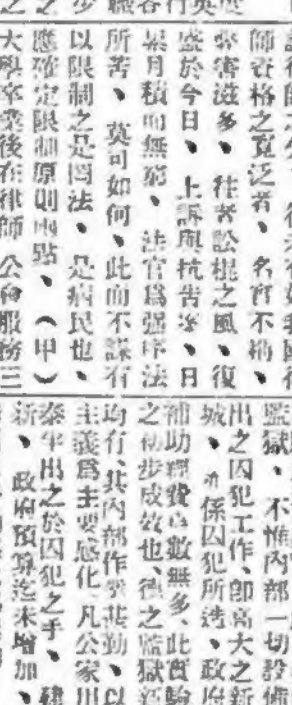 師資格之寬泛者、名實不稱、
弊害滋多、往者訟棍之風、復
盛於今日、上訴與抗告案、日
累月積而無窮、法官爲强序法
所苦、莫可如何、此而不謀有
以限制之是罔法、是病民也、
應確定限制原則兩點、（甲）
大學卒業後在律師公會服務三
監獄、不惟內部一切設備
出之囚犯工作、卽高大之新
城、亦係囚犯所造、政府
補助理費之數無多、此實驗
之初步成效也、德之監獄
均有、其內部作業甚勤、以
主義爲主要感化、凡公家用
泰半出之於囚犯之手、建
新、政府預算迄未增加、